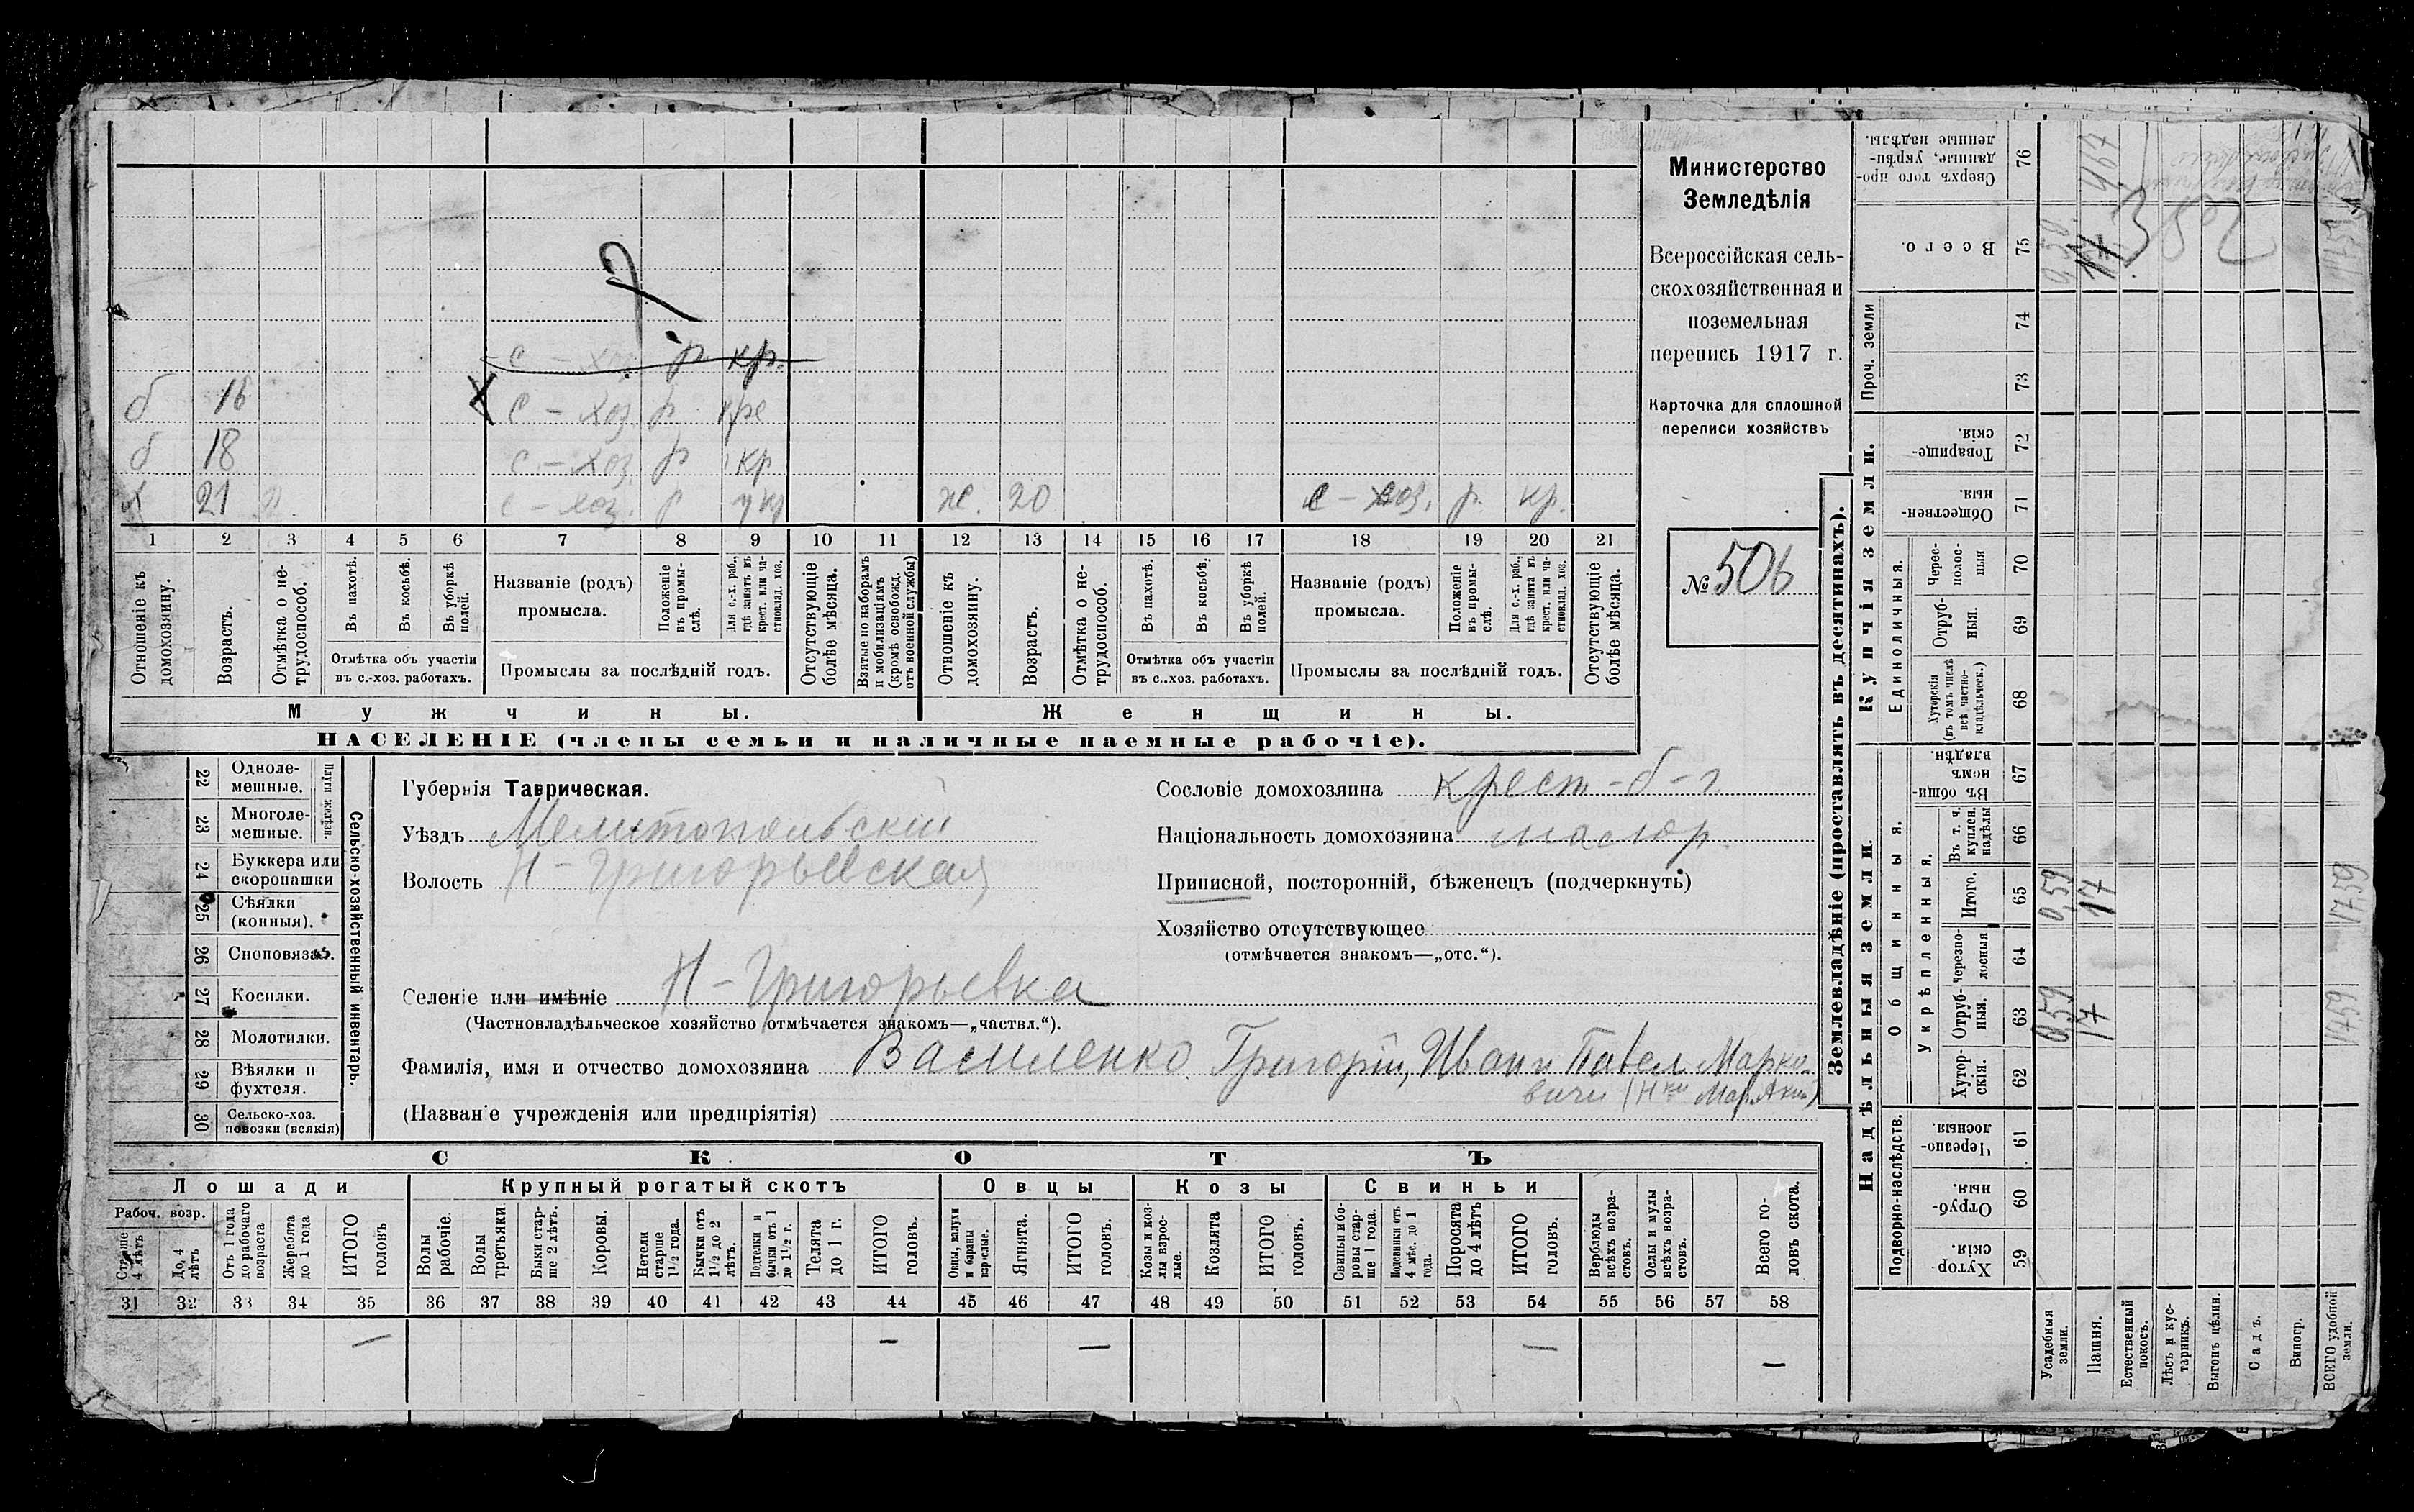 Министерство
Земледѣлія
Всероссійская сель-
скохозяйственная и
поземельная
перепись 1917 г.
Карточка для сплошной
переписи хозяйствъ
№ 506
с – хоз р кр.
б 16 с – хоз р кре
б 18 с – хоз р кр
х 21 с – хоз. р укр ж. 20 с – хоз. р. кр.
1 2 3 4 5 6 7 8 9 10 11 12 13 14 15 16 17 18 19 20 21
Отношеніе къ домохозяину.
Возрастъ.
Отмѣтка о не-трудоспособ.
Въ пахотѣ.
Въ косьбѣ.
Въ уборкѣ полей.
Отмѣтка объ участіи въ с.-хоз. работахъ.
Названіе (родъ) промысла.
Положеніе въ промы-слѣ.
Для с.-х. раб., гдѣ занятъ въ крест. или ча-стновлад. хоз.
Промыслы за послѣдній годъ.
Отсутствующіе болѣе мѣсяца.
Взятые по наборамъ и мобилизаціямъ (кромѣ освобожд. отъ военной службы)
Отношеніе къ домохозяину.
Возрастъ.
Отмѣтка о не-трудоспособ.
Въ пахотѣ.
Въ косьбѣ.
Въ уборкѣ полей.
Отмѣтка объ участіи въ с.-хоз. работахъ.
Названіе (родъ) промысла.
Положеніе въ промы-слѣ.
Для с.-х. раб., гдѣ занята въ крест. или ча-стновлад. хоз.
Промыслы за послѣдній годъ.
Отсутствующіе болѣе мѣсяца.
Мужчины. Женщины.
НАСЕЛЕНІЕ (члены семьи и наличные наемные рабочіе).
Сельско-хозяйственный инвентарь.
Плуги желѣзн.
22 Одноле-мешные.
23 Многоле-мешные.
24 Буккера или скоропашки
25 Сѣялки (конныя).
26 Сноповязал.
27 Косилки.
28 Молотилки.
29 Вѣялки и фухтеля.
30 Сельско-хоз. повозки (всякія)
Губернія Таврическая.
Уѣздъ Мелитопольскій
Волость Н-Григорьевская
Селеніе или имѣніе Н-Григорьевка
(Частновладѣльческое хозяйство отмѣчается знакомъ—„частвл.“).
Фамилія, имя и отчество домохозяина Василенко Григорій, Иван и Павел Марко
вичи (Н ки Мар. Аким)
(Названіе учрежденія или предпріятія)
Сословіе домохозяина крест-б-г
Національность домохозяина малор.
Приписной, посторонній, бѣженецъ (подчеркнуть)
Хозяйство отсутствующее
(отмѣчается знакомъ—„отс.“).
СКОТЪ
Лошади Крупный рогатый скотъ Овцы Козы Свиньи
Рабоч. возр.
Старше 4 лѣтъ
До 4 лѣтъ
Отъ 1 года до рабочаго возраста
Жеребята до 1 года
ИТОГО головъ
Волы рабочіе.
Волы третьяки.
Быки стар-ше 2 лѣтъ.
Коровы.
Нетели старше 1½ года.
Бычки отъ 1½ до 2 лѣтъ.
Подтелки и бычки отъ 1 до 1½ г.
Телята до 1 г.
ИТОГО головъ.
Овцы, валухи и бараны взрослые.
Ягнята.
ИТОГО головъ.
Козы и коз-лы взрос-лые.
Козлята
ИТОГО головъ.
Свиньи и бо-ровы стар-ше 1 года.
Подсвинки отъ 4 мѣс. до 1 года.
Поросята до 4 лѣтъ
ИТОГО головъ.
Верблюды всѣхъ возра-стовъ.
Ослы и мулы всѣхъ возра-стовъ.
Всего го-ловъ скота.
31 32 33 34 35 36 37 38 39 40 41 42 43 44 45 46 47 48 49 50 51 52 53 54 55 56 57 58
— — — — —
Землевладѣніе (проставлять въ десятинахъ).
Надѣльныя земли. Купчія земли. Проч. земли
Подворно-наслѣдств.
Общинныя.
Укрѣпленныя.
Единоличныя.
59 Хутор-скія.
60 Отруб-ныя.
61 Черезпо-лосныя.
62 Хутор-скія.
63 Отруб-ныя.
64 черезпо-лосныя
65 Итого.
66 Въ т. ч. куплен. надѣлы
67 Въ общи-номъ владѣн.
68 Хуторскія (въ томъ числѣ всѣ частно-владѣльческ.)
69 Отруб-ныя.
70 Черес-полос-ныя
71 Обществен-ныя.
72 Товарище-скія.
73
74
75 Всего.
76 Сверхъ того про-данные, укрѣп-ленные надѣлы.
Усадебныя земли. 0,59 0,59
Пашня. 17 17 17 467
Естественный покосъ.
Лѣсъ и кус-тарникъ.
Выгонъ цѣлин.
Садъ.
Виногр.
ВСЕГО удобной земли. 1759 17,59 1759
382